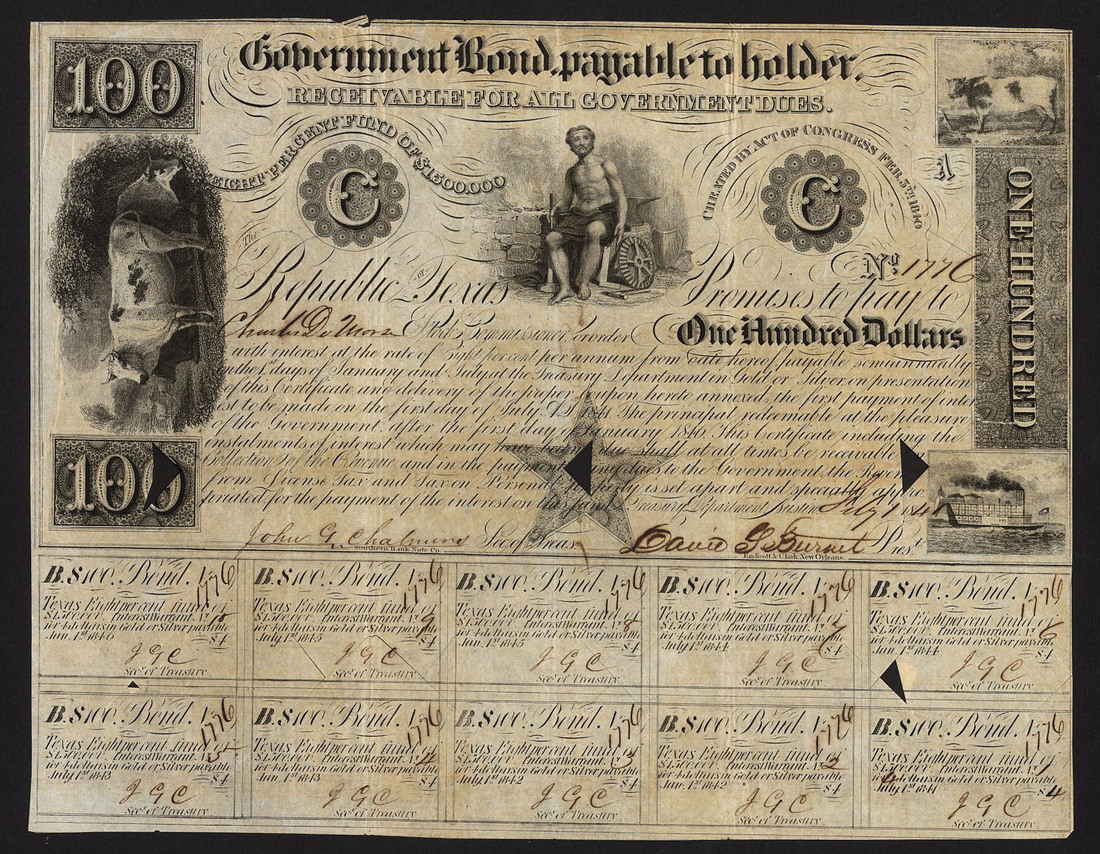 100
Government Bond, payable to holder.
RECEIVABLE FOR ALL GOVERNMENT DUES.
EIGHT PERCENT FUND OF $1,500,000
CREATED BY ACT OF CONGRESS FEB. 5TH 1840
A
C
C
ONE HUNDRED
No. 1776
The Republic OF Texas Promises to pay to
Charles De Morse Stock Commissioner or order One Hundred Dollars
with interest at the rate of Eight per cent per annum from date hereof payable semiannually
on the 1st days of January and July at the Treasury Department in Gold or Silver on presentation
of this Certificate and delivery of the proper coupon hereto annexed, the first payment of inter
est to be made on the first day of July 1841. The principal redeemable at the pleasure
of the Government after the first day of January 1846. This Certificate including the
instalments of interest which may shall at all times be receivable
Collector of the Revenue and in the payment dues to the Government, the Reven
from License Tax and Tax on Personal is set apart and specially appro
priated for the payment of the interest on Treasury Department, Austin July 1841
100
John G. Chalmers Sec. of Treas. David G. Burnet Prest.
Southern Bank Note Co. Endicott & Clark, New Orleans.
B. $100. Bond. 1776
Texas Eight per cent fund of
$1,500,000. Interest Warrant. No. 10
for 4 dollars in Gold or Silver payable
Jan. 1st 1846 $4
J G C
Secy. of Treasury.
B. $100. Bond. 1776
Texas Eight per cent fund of
$1,500,000. Interest Warrant. No. 9
for 4 dollars in Gold or Silver payable
July 1st 1845 $4
J G C
Secy. of Treasury.
B. $100. Bond. 1776
Texas Eight per cent fund of
$1,500,000. Interest Warrant. No. 8
for 4 dollars in Gold or Silver payable
Jan. 1st 1845 $4
J G C
Secy. of Treasury.
B. $100. Bond. 1776
Texas Eight per cent fund of
$1,500,000. Interest Warrant. No. 7
for 4 dollars in Gold or Silver payable
July 1st 1844 $4
J G C
Secy. of Treasury.
B. $100. Bond. 1776
Texas Eight per cent fund of
$1,500,000. Interest Warrant. No. 6
for 4 dollars in Gold or Silver payable
Jan. 1st 1844 $4
J G C
Secy. of Treasury.
B. $100. Bond. 1776
Texas Eight per cent fund of
$1,500,000. Interest Warrant. No. 5
for 4 dollars in Gold or Silver payable
July 1st 1843 $4
J G C
Secy. of Treasury.
B. $100. Bond. 1776
Texas Eight per cent fund of
$1,500,000. Interest Warrant. No. 4
for 4 dollars in Gold or Silver payable
Jan. 1st 1843 $4
J G C
Secy. of Treasury.
B. $100. Bond. 1776
Texas Eight per cent fund of
$1,500,000. Interest Warrant. No. 3
for 4 dollars in Gold or Silver payable
July 1st 1842 $4
J G C
Secy. of Treasury.
B. $100. Bond. 1776
Texas Eight per cent fund of
$1,500,000. Interest Warrant. No. 2
for 4 dollars in Gold or Silver payable
Jan. 1st 1842 $4
J G C
Secy. of Treasury.
B. $100. Bond. 1776
Texas Eight per cent fund of
$1,500,000. Interest Warrant. No. 1
for 4 dollars in Gold or Silver payable
July 1st 1841 $4
J G C
Secy. of Treasury.